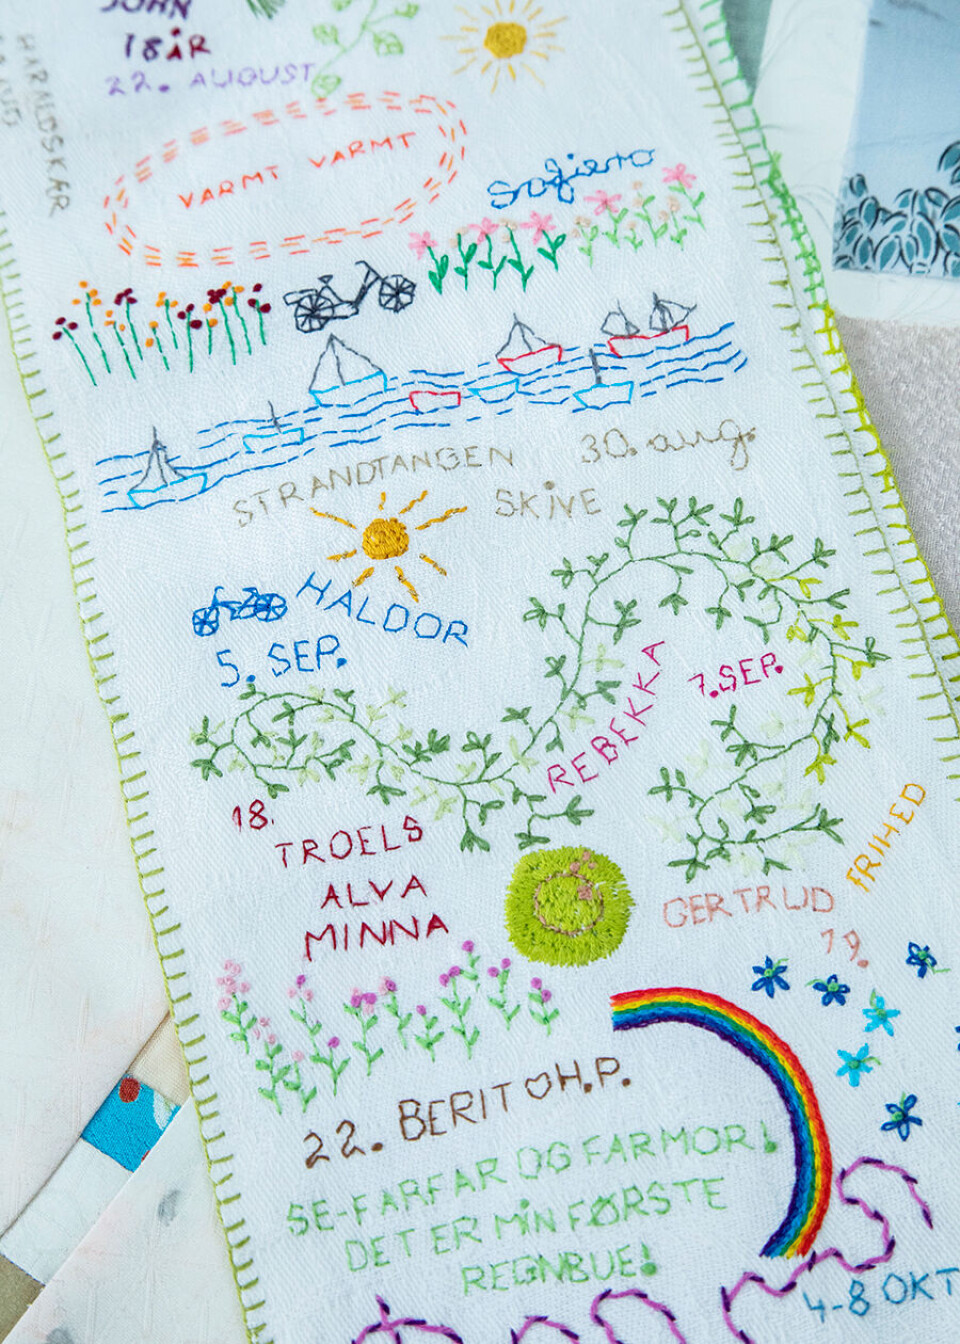 JOHN
18 ÅR
22. AUGUST
HARALDSKÆR
VARMT VARMT
Sofiero
STRANDTANGEN 30. aug.
SKIVE
HALDOR
5. SEP.
REBEKKA
7. SEP.
18.
TROELS
ALVA
MINNA
GERTRUD
19.
FRIHED
22. BERIT ♡ H.P.
SE-FARFAR OG FARMOR!
DET ER MIN FØRSTE
REGNBUE!
4-8 OKT